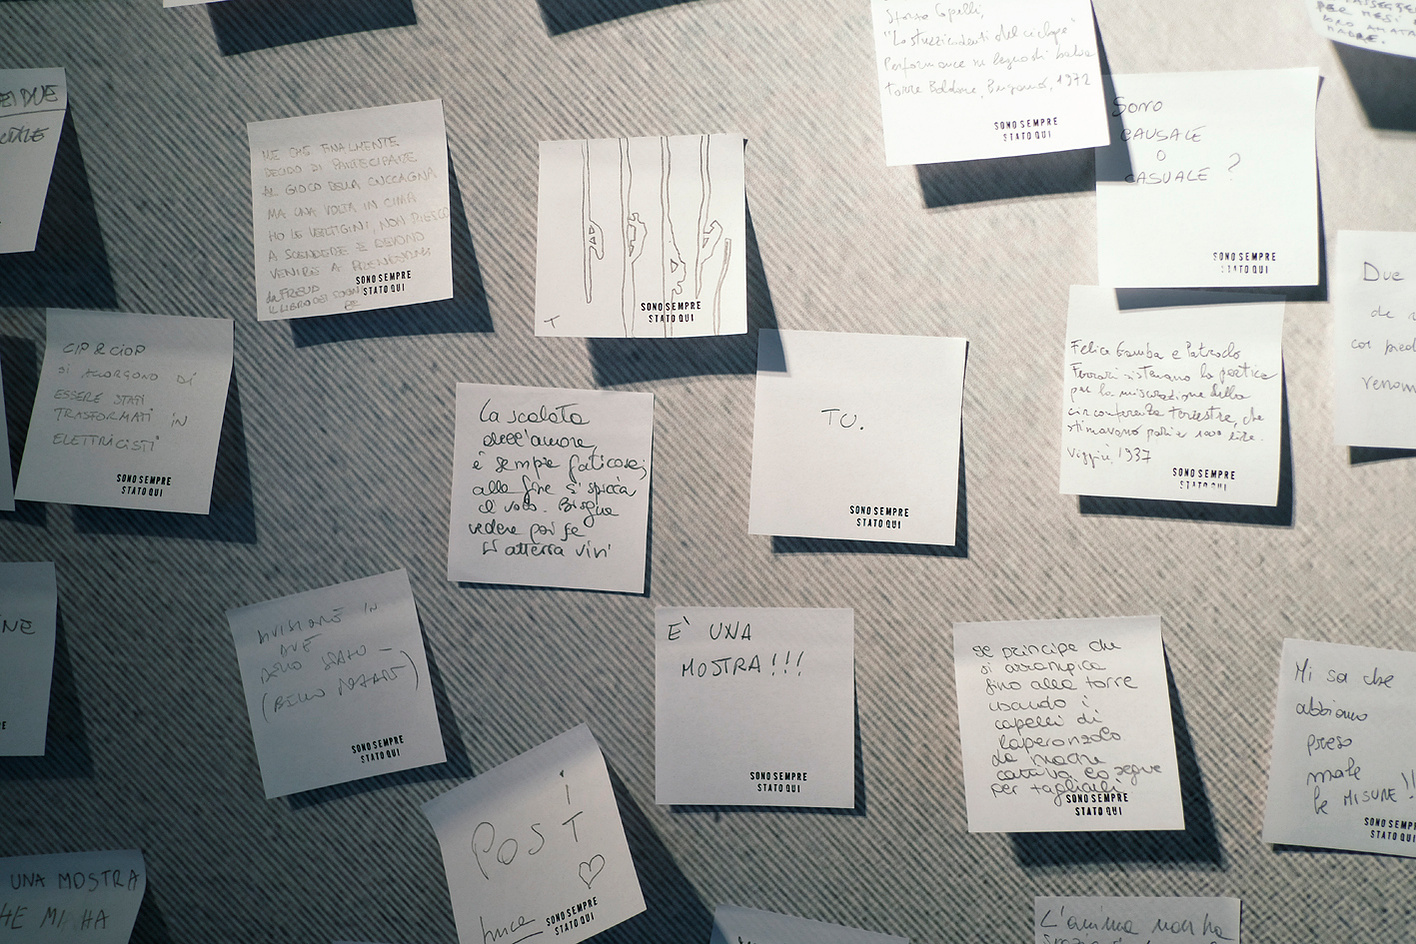 EI DUE
ME CHE FINALMENTE
DECIDO DI PARTECIPARE
AL GIOCO DELLA CUCCAGNA
MA UNA VOLTA IN CIMA
HO LE VERTIGINI, NON RIESCO
A SCENDERE E DEVONO
VENIRE A PRENDERMI
da FREUD
IL LIBRO DEI SOGNI
SONO SEMPRE
STATO QUI
T
SONO SEMPRE
STATO QUI
"Lo stuzzicadenti del ciclope"
Performance su legno di balsa
Torre Boldone, Bergamo, 1972
SONO SEMPRE
STATO QUI
PER MESI
LORO AMATA
MADRE.
Sono
CAUSALE
O
CASUALE ?
SONO SEMPRE
STATO QUI
Due
de
coi pied
venom
CIP & CIOP
SI ACCORGONO DI
ESSERE STATI
TRASFORMATI IN
ELETTRICISTI
SONO SEMPRE
STATO QUI
La scalata
dell'amore,
è sempre faticosa;
alla fine si spicca
il volo. Bisogna
vedere poi se
si atterra vivi
TU.
SONO SEMPRE
STATO QUI
Felice Gamba e Patroclo
Ferrari sistemano la pertica
per la misurazione della
circonferenza terrestre, che
stimavano pari a 1000 lire.
Viggiù, 1937
SONO SEMPRE
STATO QUI
NE
DIVISIONE IN
DUE
DELLO STATO -
(BELLO NATANTE)
SONO SEMPRE
STATO QUI
E' UNA
MOSTRA!!!
SONO SEMPRE
STATO QUI
Il principe che
si arrampica
fino alla torre
usando i
capelli di
Raperonzolo
la madre
cattiva lo segue
per tagliarli
SONO SEMPRE
STATO QUI
Mi sa che
abbiamo
preso
male
le MISURE!!
SONO SEMPRE
STATO QUI
POST
iT
Luca
SONO SEMPRE
STATO QUI
UNA MOSTRA
HE MI HA
L'anima non ha